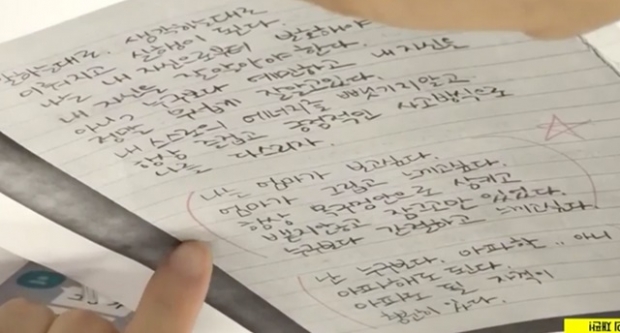 말하는대로. 생각하는대로
이루어지고 실행이 된다.
나는 내 자신으로부터 발전해야
내 자신을 잘 알아야한다.
아니 누구보다 예민하고 내 자신을
정말 무섭게 잘 알고있다.
내 스스로의 에너지를 뺏기지 않고
항상 즐겁고 긍정적인 사고방식으로
나를 다스리자.
나는 엄마가 보고싶다.
엄마가 그립고 느끼고싶다.
항상 목구멍안으로 삼키고
뱉지않고 참고만 있었다.
누구보다 간절하고 느끼고싶다.
난 누구보다. 아파한.. 아니
아파해도 된다.
아파도 될 자격이
충분히 있다.